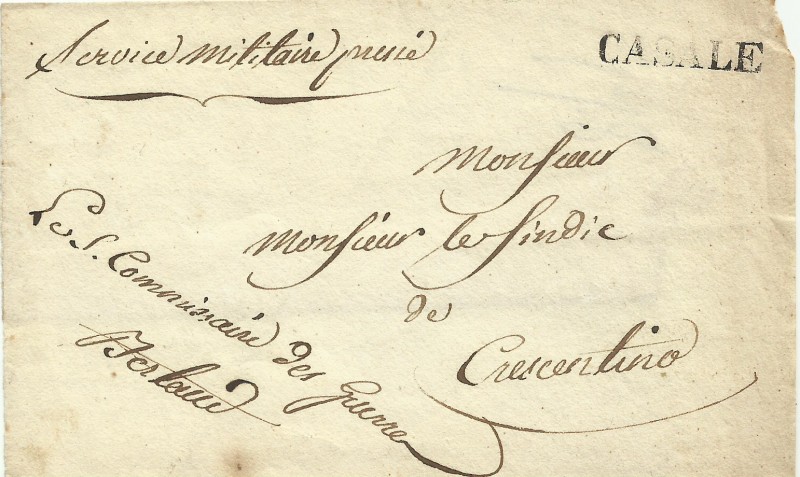 Service militaire pressé
CASALE
Monsieur
Monsieur le Sindic
de
Crescentino
Le S. Commissaire des Guerre